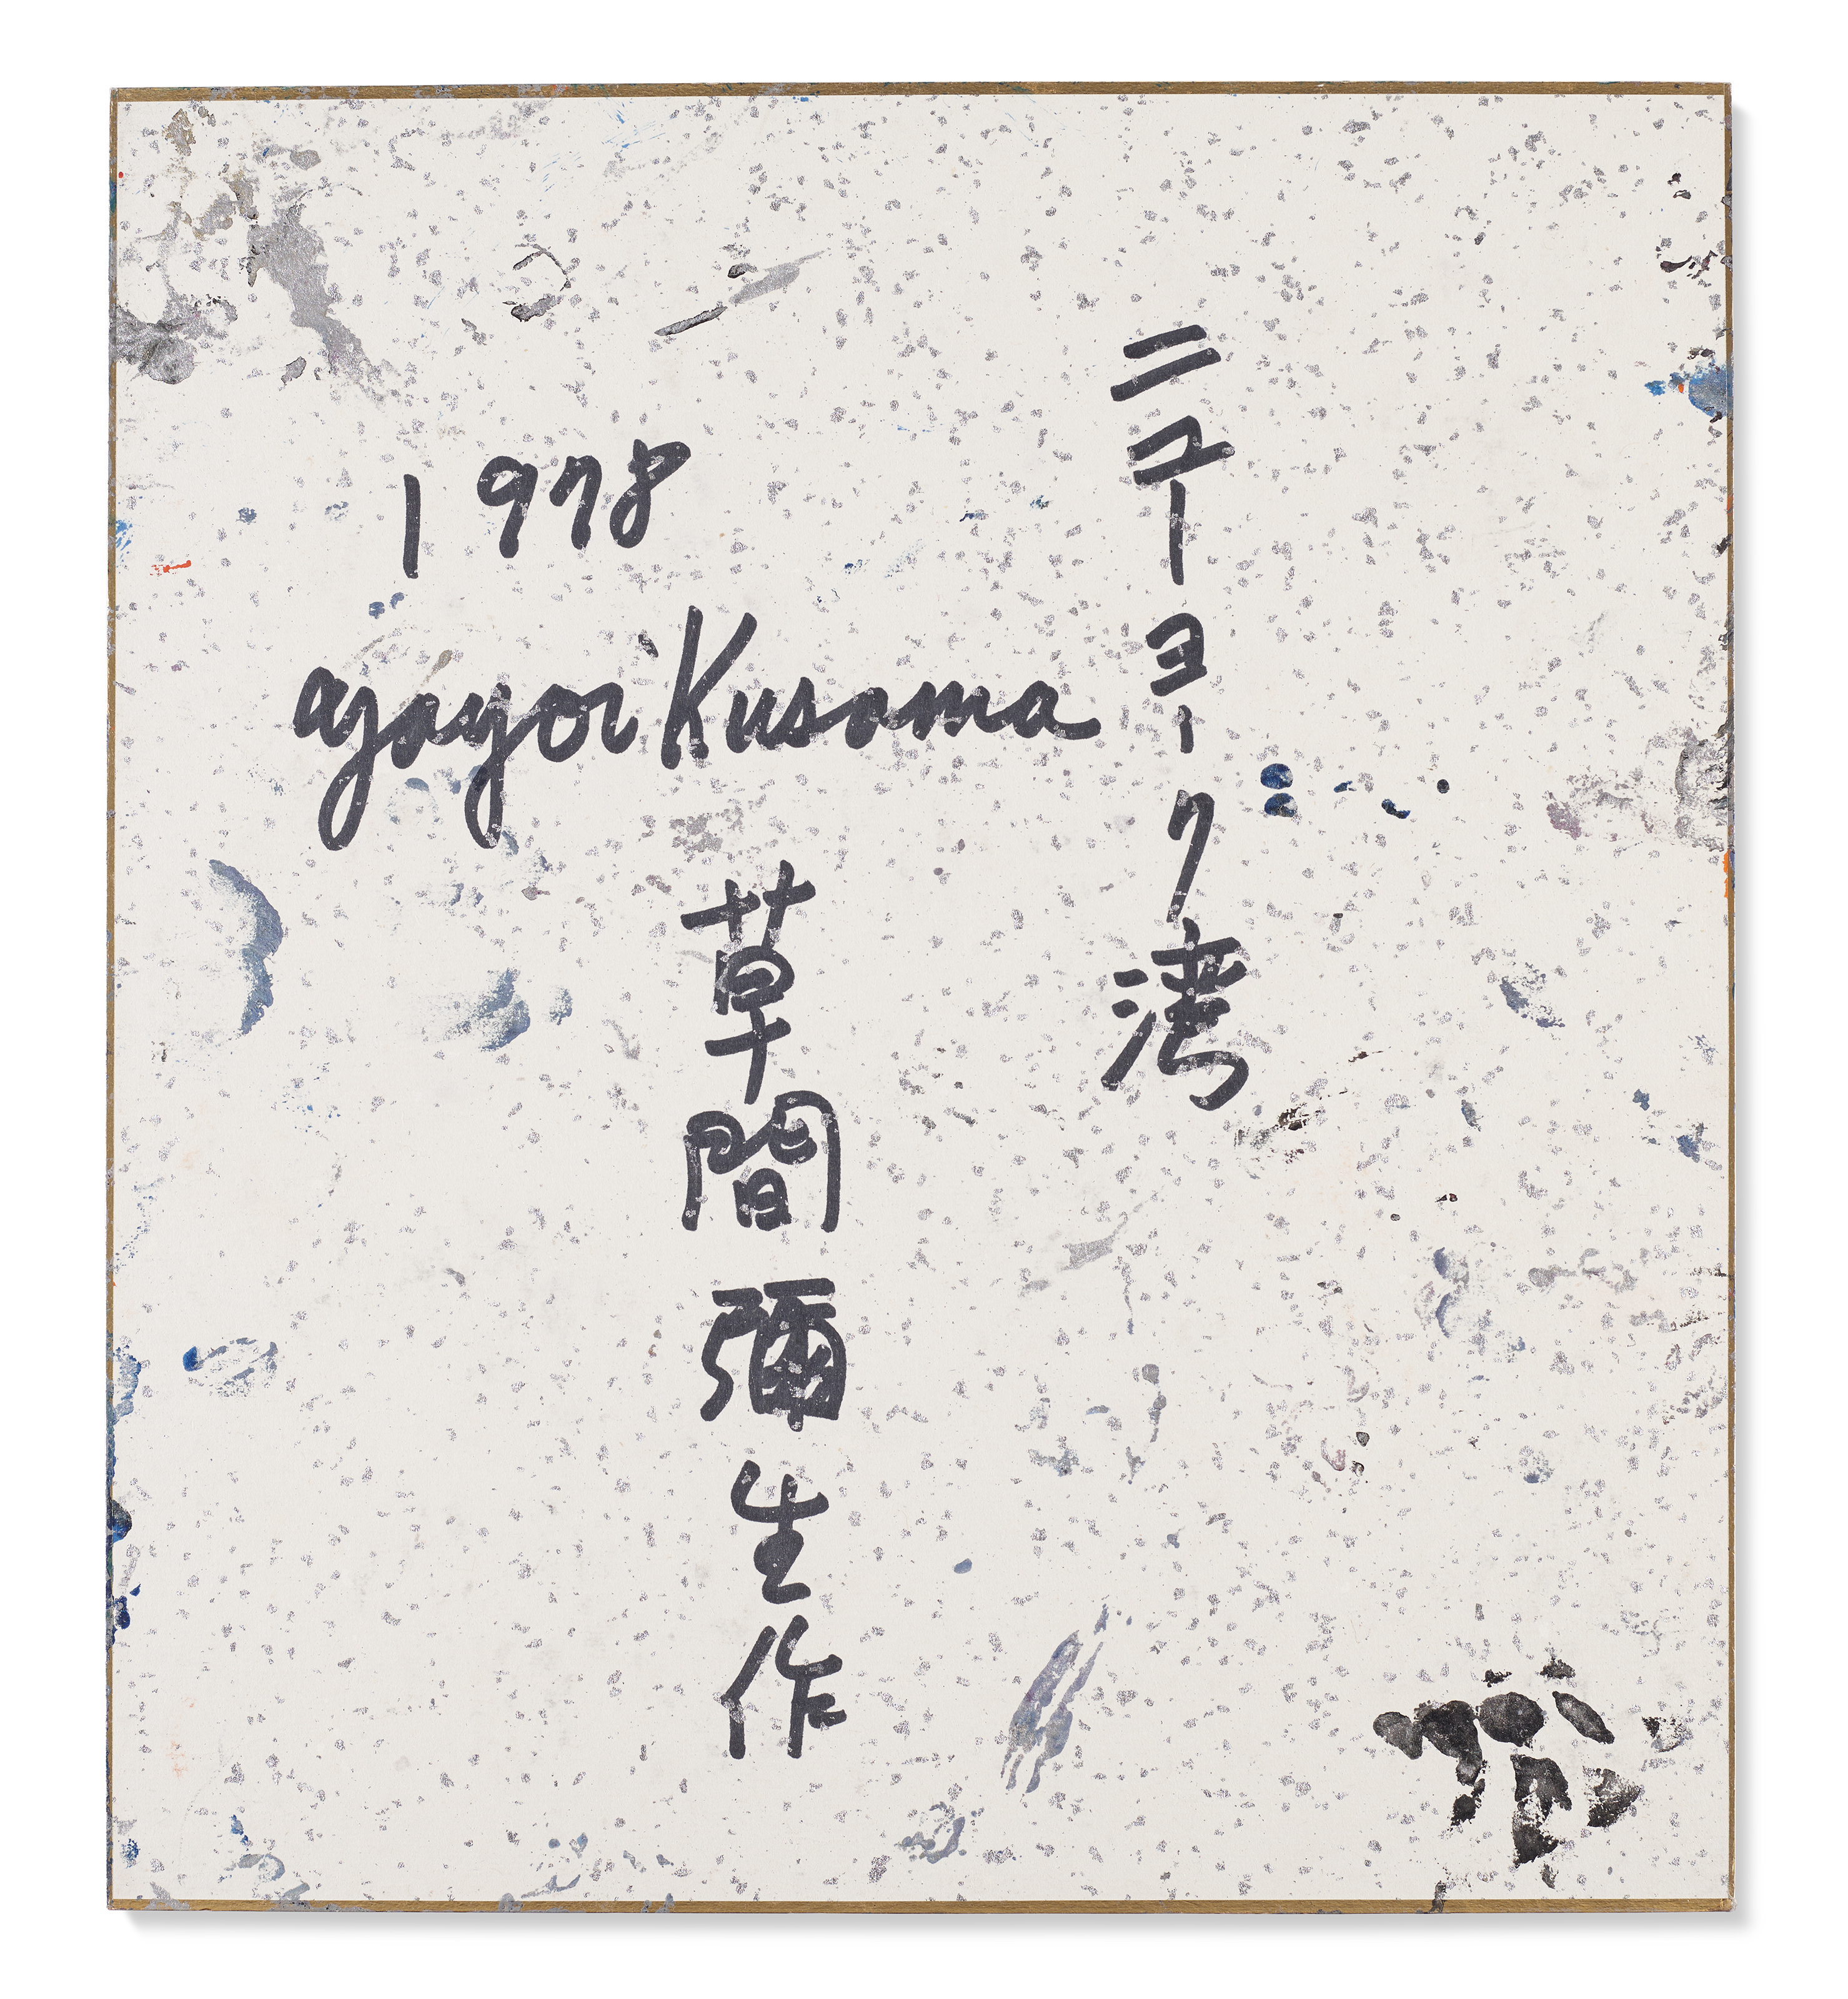 ニューヨーク湾
1978
Yayoi Kusama
草間彌生作